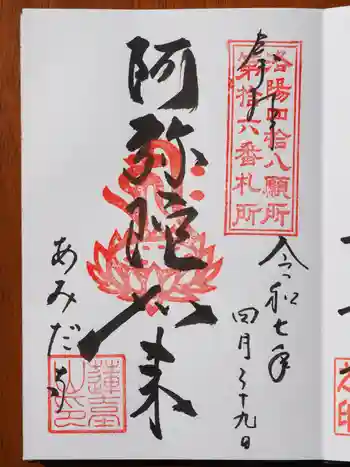 洛陽四拾八願所
第拾六番札所
奉拝
令和七年
四月二十九日
阿弥陀如来
あみだ寺
蓮臺